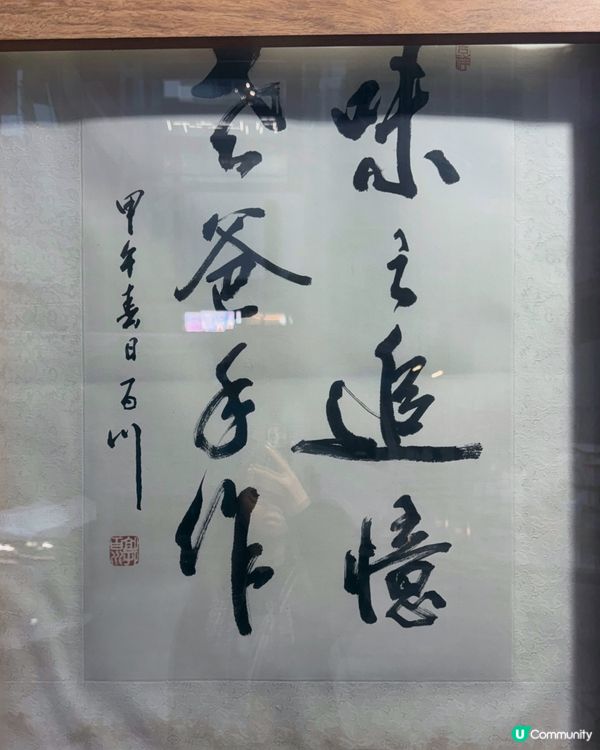 味之追憶
爸手作
甲午春日百川
U Community